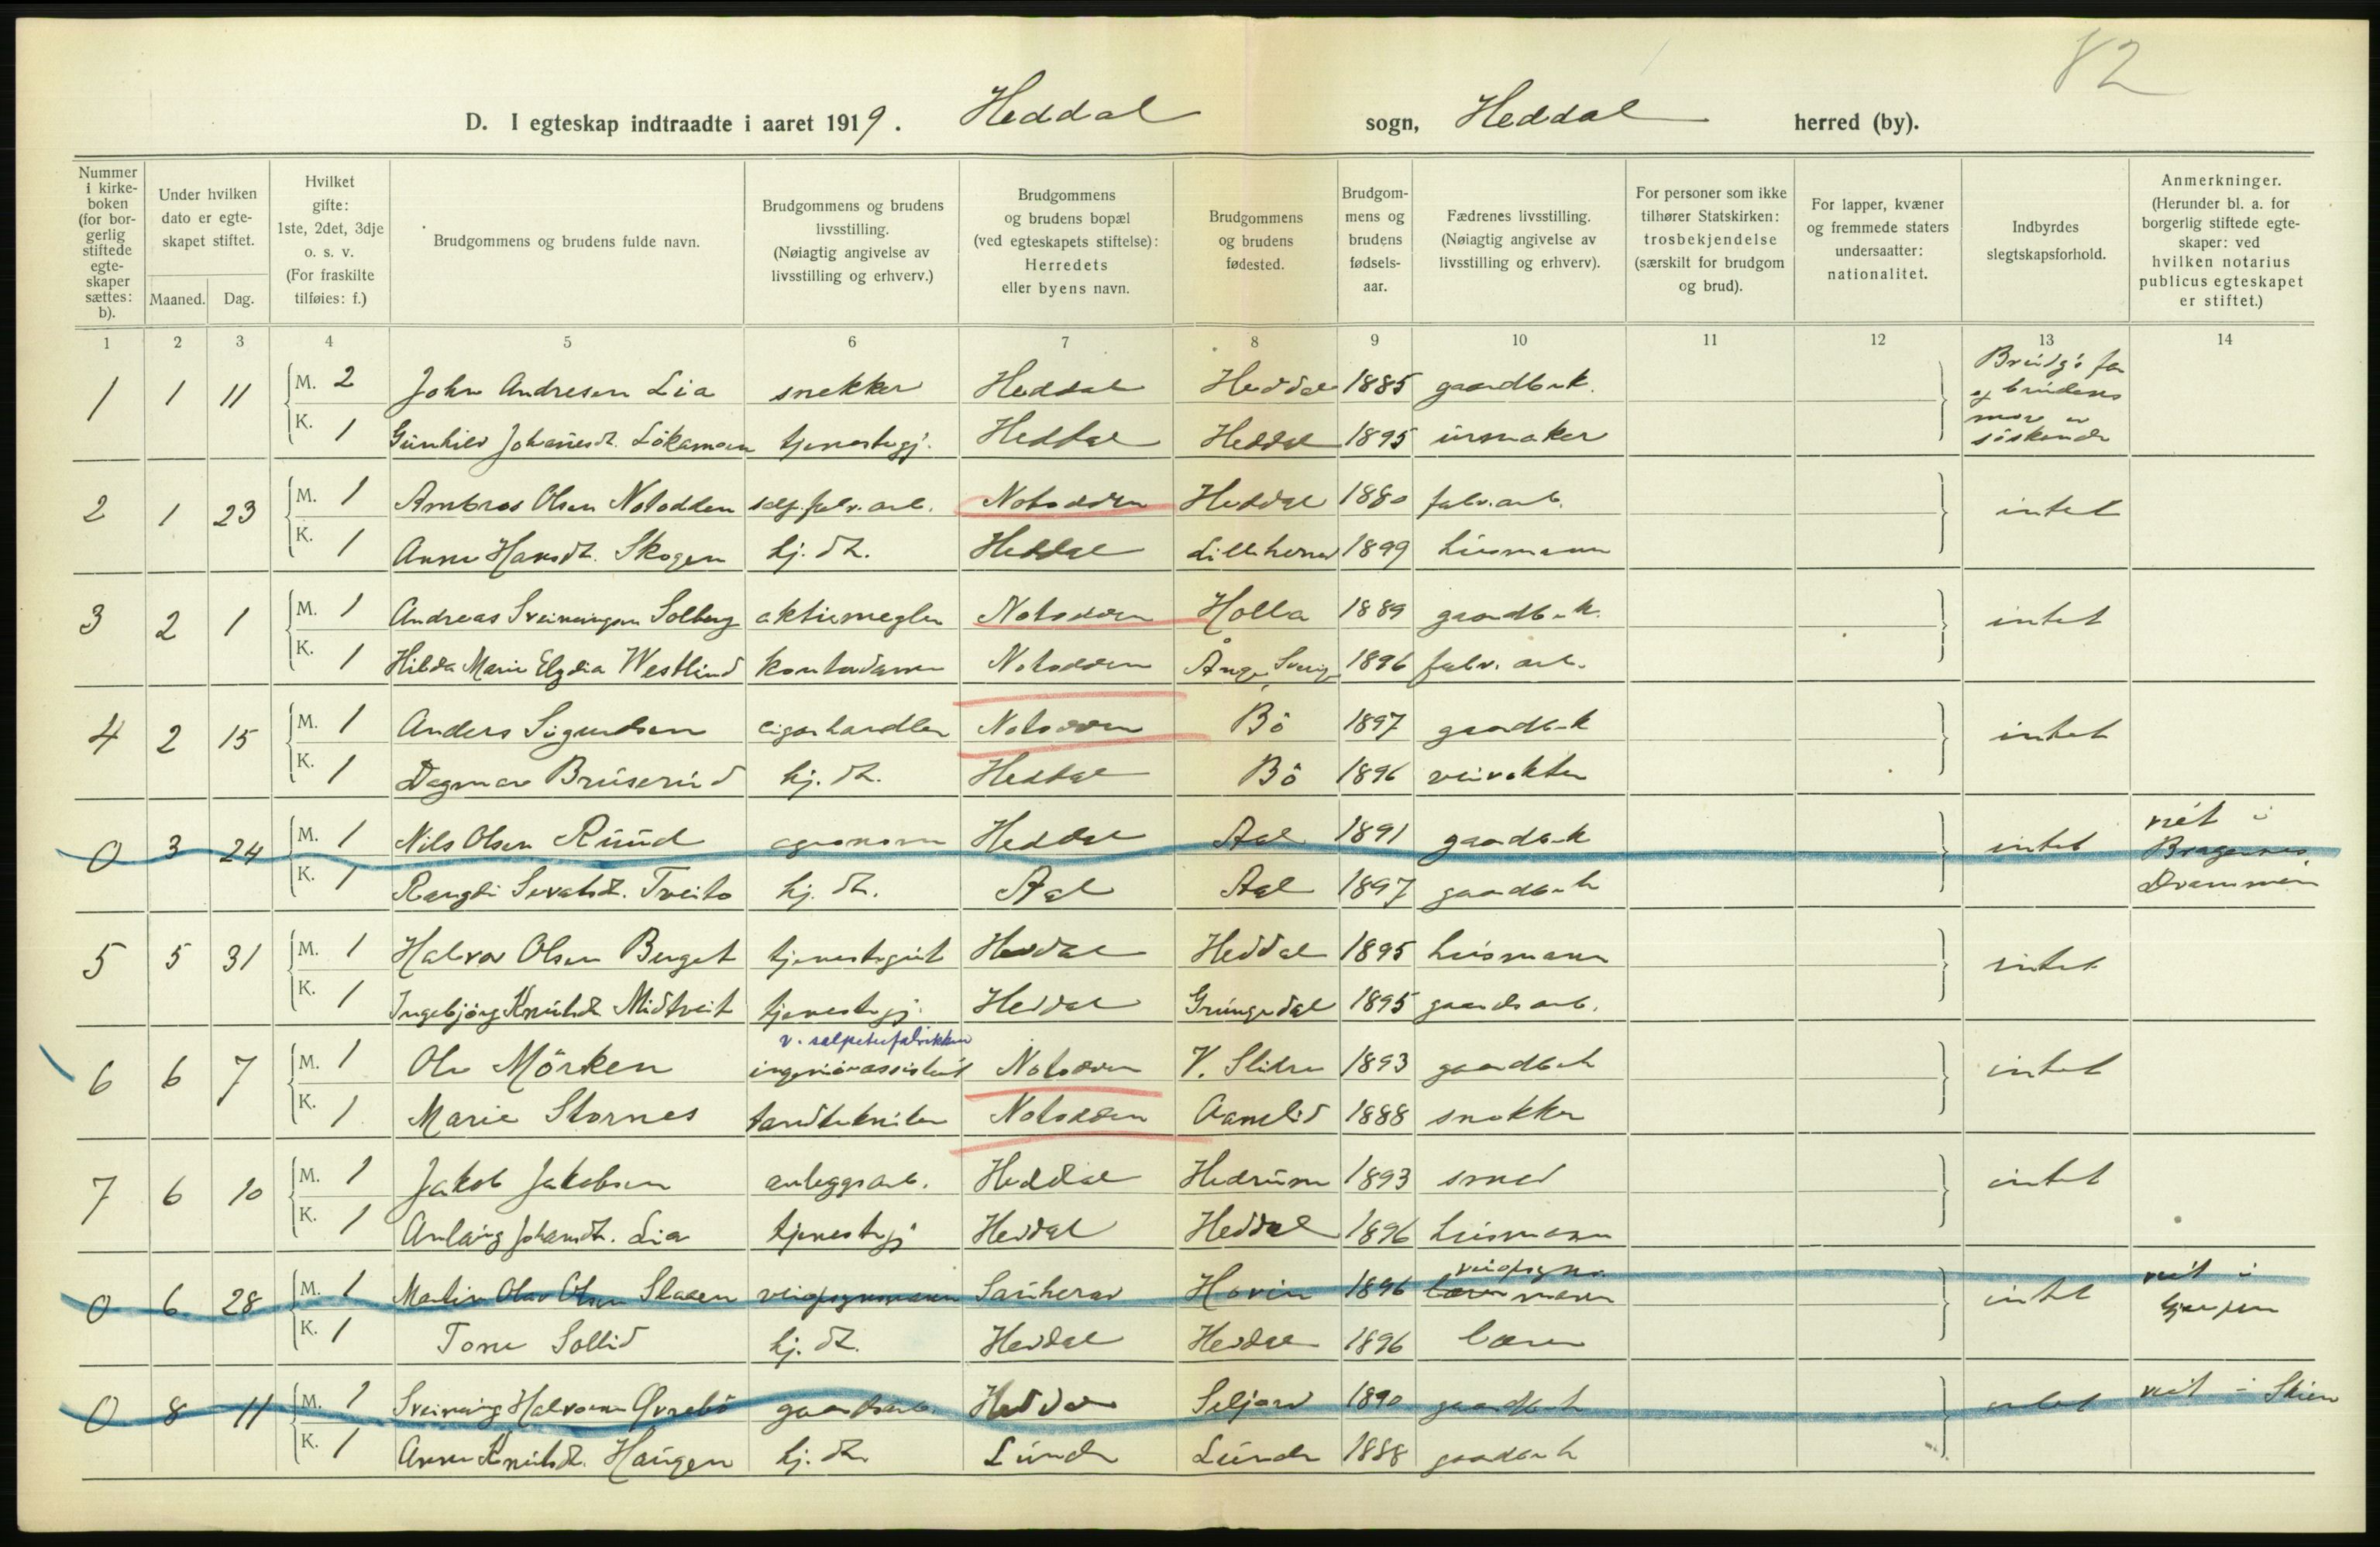 82
D. I egteskap indtraadte i aaret 1919. Heddal sogn, Heddal herred (by).
Nummer i kirke-boken (for bor-gerlig stiftede egte-skaper sættes: b).
Under hvilken dato er egte-skapet stiftet.
Maaned. Dag.
Hvilket gifte: 1ste, 2det, 3dje o. s. v. (For fraskilte tilføies: f.)
Brudgommens og brudens fulde navn.
Brudgommens og brudens livsstilling. (Nøiagtig angivelse av livsstilling og erhverv.)
Brudgommens og brudens bopæl (ved egteskapets stiftelse): Herredets eller byens navn.
Brudgommens og brudens fødested.
Brudgom-mens og brudens fødsels-aar.
Fædrenes livsstilling. (Nøiagtig angivelse av livsstilling og erhverv).
For personer som ikke tilhører Statskirken: trosbekjendelse (særskilt for brudgom og brud).
For lapper, kvæner og fremmede staters undersaatter: nationalitet.
Indbyrdes slegtskapsforhold.
Anmerkninger. (Herunder bl. a. for borgerlig stiftede egte-skaper: ved hvilken notarius publicus egteskapet er stiftet.)
1 2 3 4 5 6 7 8 9 10 11 12 13 14
1 1 11 M. 2 John Andresen Lia snekker Heddal Heddal 1885 gaardbruk. Brudg's far og brudens mor er søskende
K. 1 Gunhild Johannesdt. Lökamoen tjenestegj. Heddal Heddal 1895 urmaker
2 1 23 M. 1 Ambros Olsen Notodden salp.fabr.arb. Notodden Heddal 1880 fabr.arb. intet
K. 1 Anne Hansdt. Skogen hj. dt. Heddal Lilleherred 1899 husmann
3 2 1 M. 1 Andreas Sveinungsen Solberg aktiemegler Notodden Holla 1889 gaardbruk. intet
K. 1 Hilda Marie Elydia Westlund kontordame Notodden Ånge, Sverige 1896 fabr. arb.
4 2 15 M. 1 Anders Sigurdsen cigarhandler Notodden Bö 1897 gaardbruk intet
K. 1 Dagmar Bruserud hj. dt. Heddal Bö 1896 veivokter
0 3 24 M. 1 Nils Olsen Ruud agronom Heddal Aal 1891 gaardbruk intet viet i Bragernes, Drammen
K. 1 Rangdi Sevatsdt. Treito hj. dt. Aal Aal 1897 gaardbruk
5 5 31 M. 1 Halvor Olsen Berget tjenestegut Heddal Heddal 1895 husmann intet
K. 1 Ingebjörg Knutsdt. Midtveit tjenestegj. Heddal Grungedal 1895 gaardsarb.
v. salpeterfabrikken
6 6 7 M. 1 Olav Mörken ingeniörassistent Notodden V. Slidre 1893 gaardbruk intet
K. 1 Marie Stornes tandtekniker Notodden Aamlid 1888 snekker
7 6 10 M. 1 Jakob Jakobsen anleggsarb. Heddal Hedrum 1893 smed intet
K. 1 Anlaug Johansdt. Lia tjenestegj Heddal Heddal 1896 husmann
0 6 28 M. 1 Martin Olav Olsen Staaen veiopsynsmann Sauherad Hovin 1896 veiopsyns- mann intet viet i Gjerpen
K. 1 Tone Sollid hj. dt. Heddal Heddal 1896 lærer
0 8 11 M. 1 Sveinung Halvorsen Øvrebö gaardsarb. Heddal Seljord 1890 gaardbruk intet viet i Skien
K. 1 Anne Knutsdt. Haugen hj. dt. Lunde Lunde 1888 gaardbruk